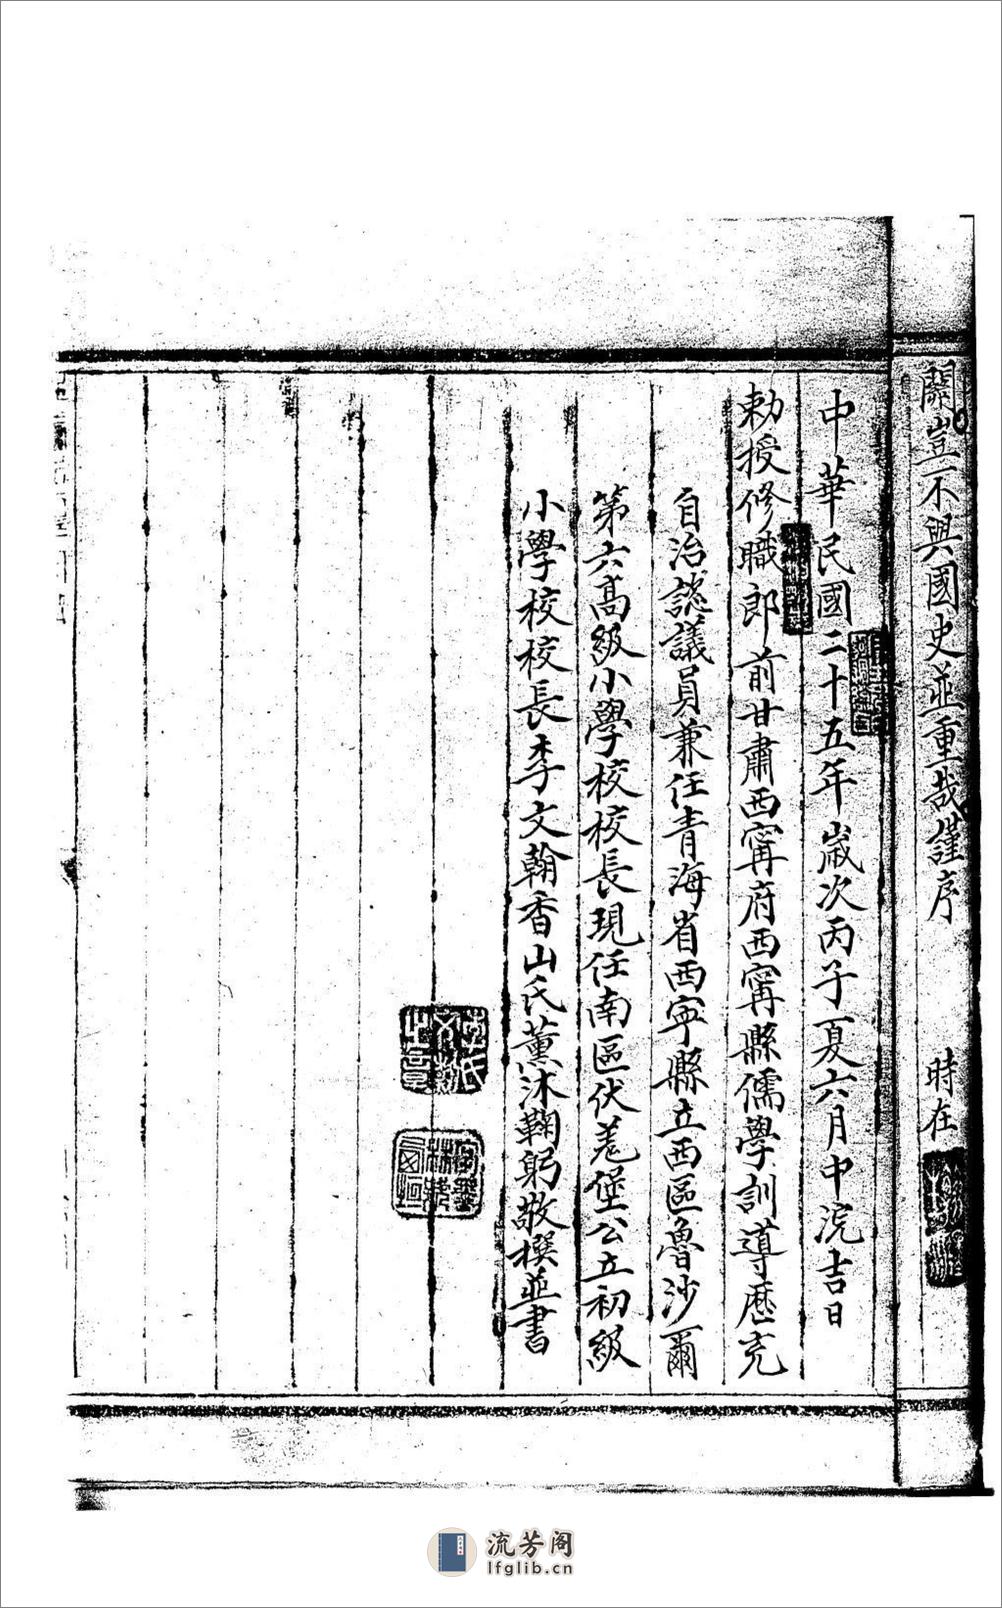 關豈不與國史並重哉謹序　時在
中華民國二十五年歲次丙子夏六月中浣吉日
勅授修職郎前甘肅西寗府西寗縣儒學訓導歷充
自治諮議員兼任青海省西寧縣立西區魯沙爾
第六高級小學校校長現任南區伏羌堡公立初級
小學校校長李文翰香山氏薰沐鞠躬敬撰並書
流芳阁
lfglib.cn